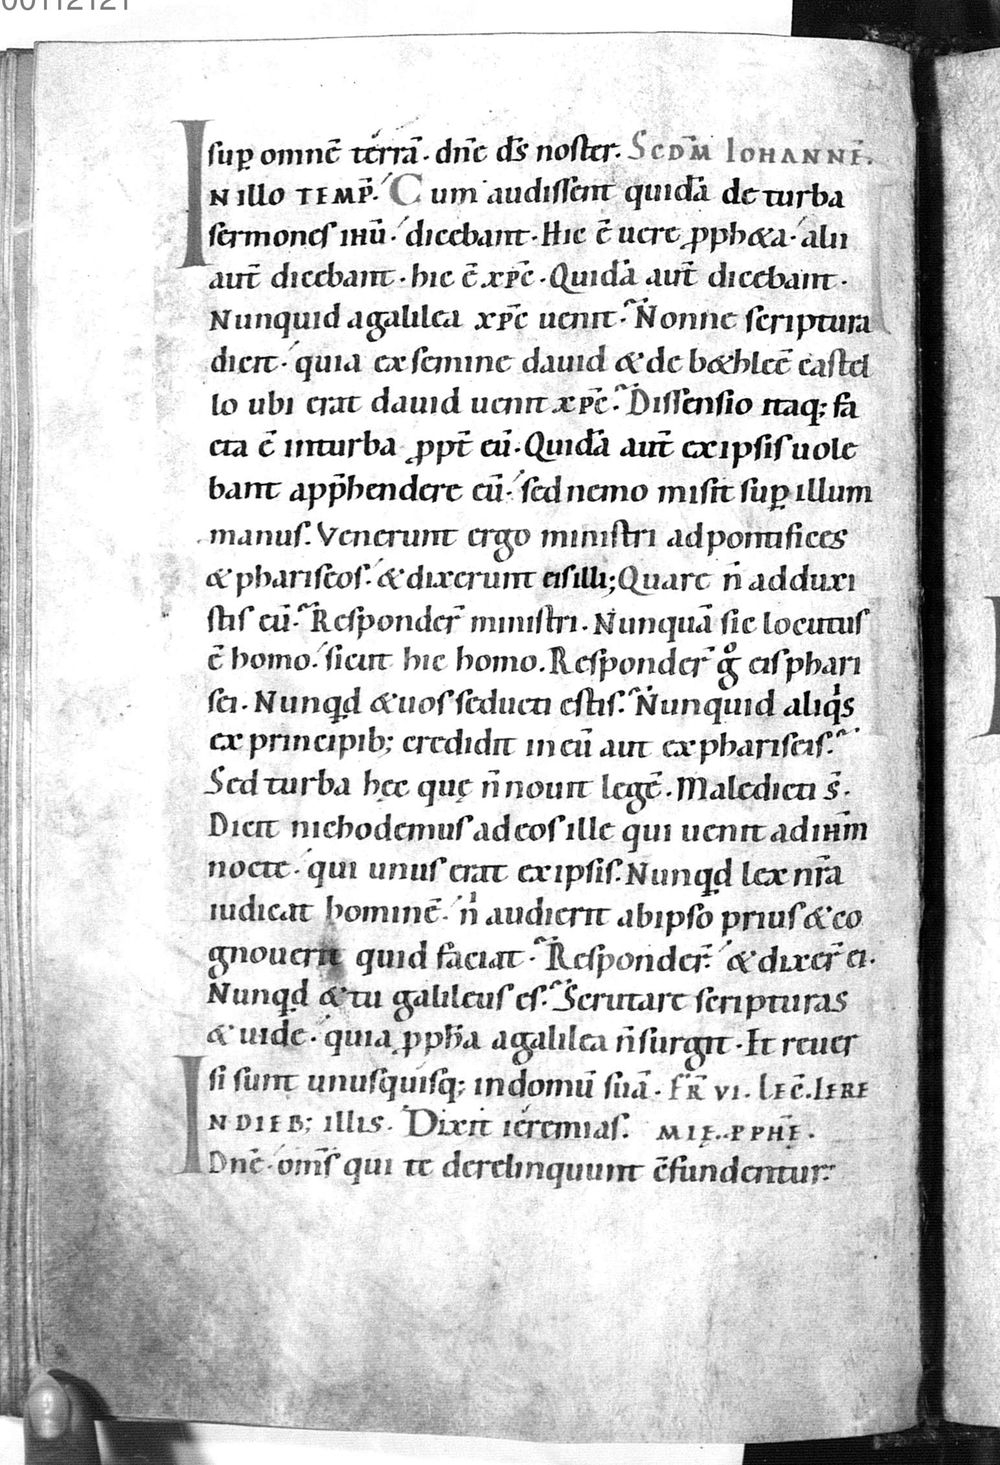 00112121
sup̲ omnē terrā. dn̄e d̄s noster. Scdm̄ Iohannē.
In illo temp̄. Cum audissent quidā de turba
sermones ihū. dicebant. Hic ē uere ꝓph&a. alii
aut̄ dicebant. hic ē xp̄c. Quidā aut̄ dicebant.
Nunquid a galilea xp̄c uenit. Nonne scriptura
dicit. quia ex semine dauid & de b&hleē castel
lo ubi erat dauid uenit xp̄c. Dissensio itaq; fa
cta ē in turba ꝓpt̄ eū. Quidā aut̄ ex ipsis uole
bant app̄hendere eū. sed nemo misit sup̲ illum
manus. Venerunt ergo ministri ad pontifices
& phariseos. & dixerunt eis illi; Quare n̄ adduxi
stis eū. Responder̄ ministri. Nunquā sic locutus
ē homo. sicut hic homo. Responder̄ gͦ eis phari
sei. Nunqd & uos seducti estis. Nunquid aliqs
ex principib; credidit in eū aut ex phariseis.
Sed turba hęc quę n̄ nouit legē. Maledicti s̄.
Dicit nichodemus ad eos ille qui uenit ad ihm̄
nocte. qui unus erat ex ipsis. Nunqd lex nr̄a
iudicat hominē. n audierit ab ipso prius & co
gnouerit quid faciat. Responder̄. & dixer̄ ei.
Nunqd & tu galileus es. Scrutare scripturas
& uide. quia ꝓph̄a a galilea n̄ surgit. Et reuer
si sunt unusquisq; in domū suā. Fr̄ VI. Lec̄. Iere
In dieb; illis. Dixit ieremias. mię. pphę̄.
Dn̄e. om̄s qui te derelinquunt c̄fundentur.